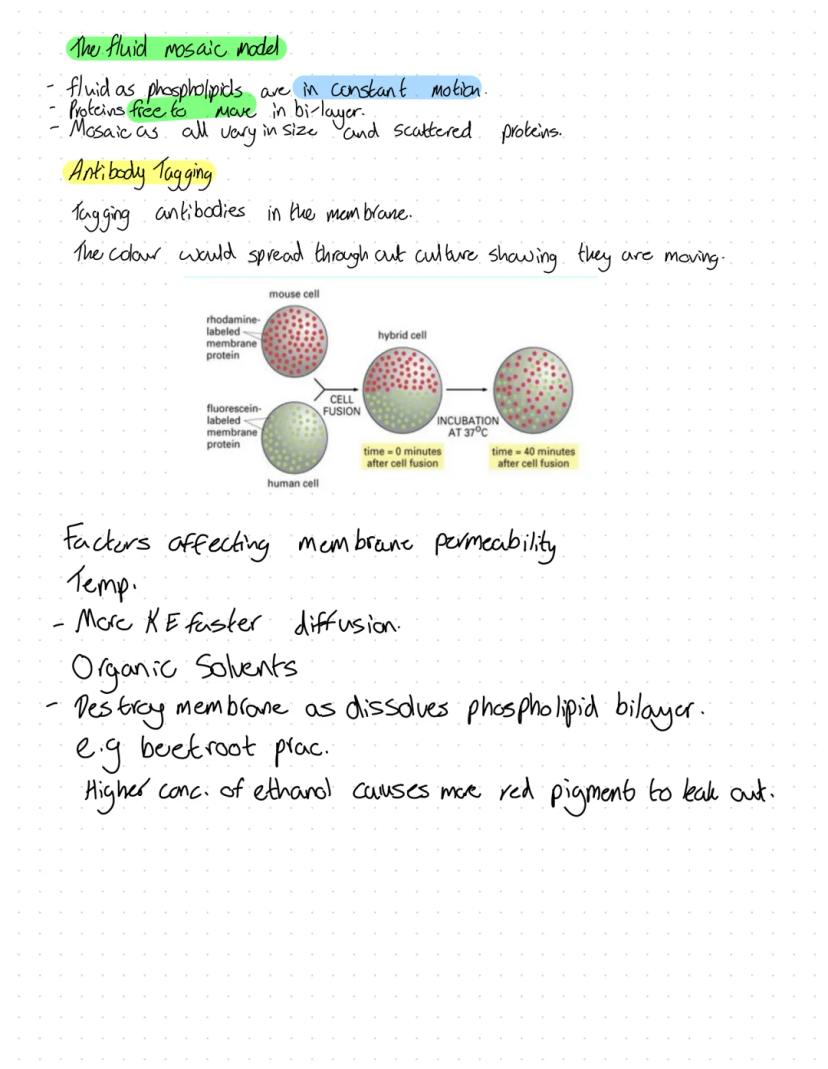 The fluid mosaic model
- fluid as phospholipids are in constant motion.
- Proteins free to move in bi-layer.
- Mosaic as all vary in size and scattered proteins.
Antibody Tagging
Tagging antibodies in the membrane.
The colour would spread through out culture showing they are moving.
mouse cell
rhodamine-
labeled
membrane
protein
hybrid cell
CELL
FUSION
fluorescein-
labeled
membrane
protein
INCUBATION
AT 37°C
time = 0 minutes
after cell fusion
time = 40 minutes
after cell fusion
human cell
Factors affecting membrane permeability
Temp.
- More KE faster diffusion.
Organic Solvents
- Destroy membrane as dissolves phospholipid bilayer.
e.g beetroot prac.
Higher conc. of ethanol causes more red pigment to leak out.